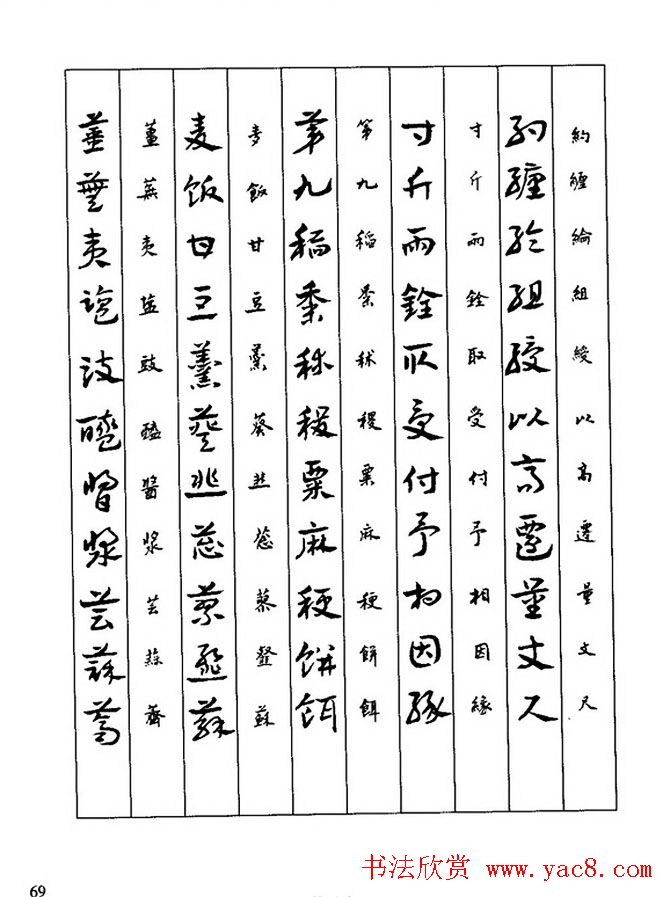 約纏綸組綬以高遷量丈尺
約纏綸組綬以高遷量丈尺
寸斤兩銓取受付予相因緣
寸斤兩銓取受付予相因緣
第九稻黍秫稷粟麻粳餅餌
第九稻黍秫稷粟麻粳餅餌
麥飯甘豆羹葵韭葱蘇
麥飯甘豆羹葵韭葱蘇
薑蕪夷盐豉醯醬漿芸蒜薺
薑蕪夷盐豉醯醬漿芸蒜薺
69
书法欣赏 www.yac8.com